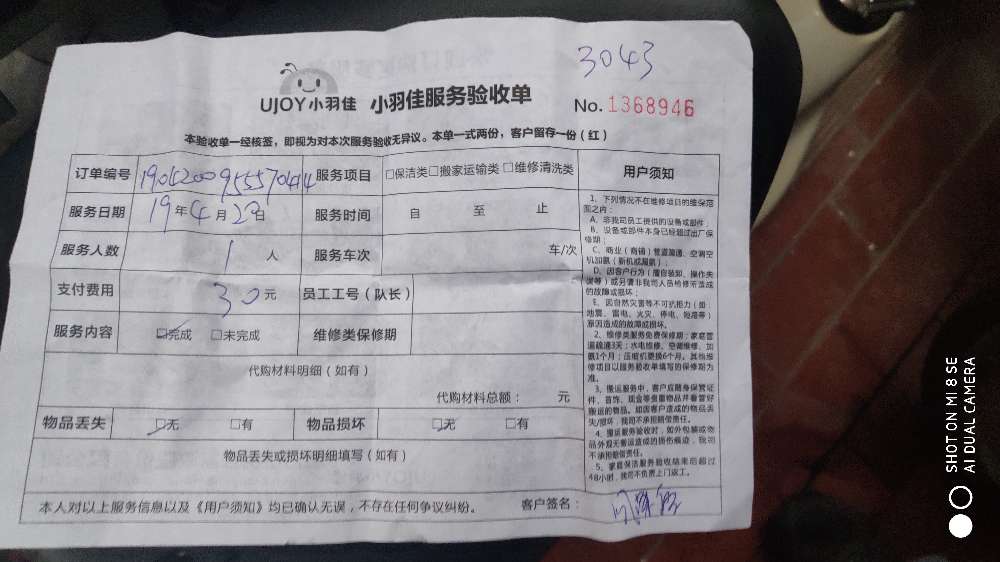 3043
UJOY小羽佳 小羽佳服务验收单 No. 1368946
本验收单一经核签，即视为对本次服务验收无异议。本单一式两份，客户留存一份（红）
订单编号 服务项目 □保洁类□搬家运输类□维修清洗类 用户须知
服务日期 19年4月20日 服务时间 自 至 止
服务人数 1人 服务车次 车/次
支付费用 30元 员工工号（队长）
服务内容 □完成 □未完成 维修类保修期
代购材料明细（如有）
代购材料总额： 元
物品丢失 □无 □有 物品损坏 □无 □有
物品丢失或损坏明细填写（如有）
本人对以上服务信息以及《用户须知》均已确认无误，不存在任何争议纠纷。 客户签名：
1、下列情况不在维修项目的维保范
围之内：
A、非我司员工提供的设备或部件；
B、设备或部件本身已经超过出厂保
修期；
C、商业（商铺）管道疏通、空调空
机加氨（新机或漏氨）；
D、因客户行为（擅自装卸、操作失
误等）或另请非我司人员检修所造成
的故障或损坏；
E、因自然灾害等不可抗拒力（如：
地震、雷电、火灾、停电、短路等）
原因造成的故障或损坏。
2、维修类服务免费保修期：家庭管
道疏通3天；水电维修、空调维修、加
氨1个月；压缩机更换6个月。其他维
修项目以服务验收单填写的保修期为
准。
3、搬运服务中，客户应随身保管证
件、首饰、现金等贵重物品并看管好
搬运的物品。如因客户造成的物品丢
失/损坏，我司不承担赔偿责任。
4、搬运服务验收时，如外包装或物
品外观无搬运造成的损伤痕迹，我司
不承担赔偿责任。
5、家庭保洁服务验收结束后超过
48小时，我司不负责上门返工。
SHOT ON MI 8 SE
AI DUAL CAMERA